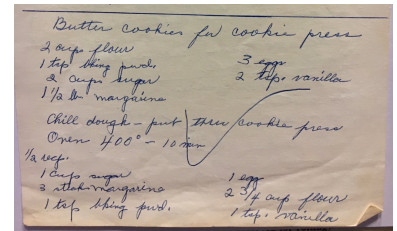 Butter cookies for cookie press
2 cups flour
1 tsp bking pwd.
2 cups sugar
1 1/2 lb margarine
3 eggs
2 tsp. vanilla
Chill dough - put thru cookie press
Oven 400° - 10 min
1/2 recp.
1 cups sugar
3 sticks margarine
1 tsp bking pwd.
1 egg
2 3/4 cup flour
1 tsp. vanilla